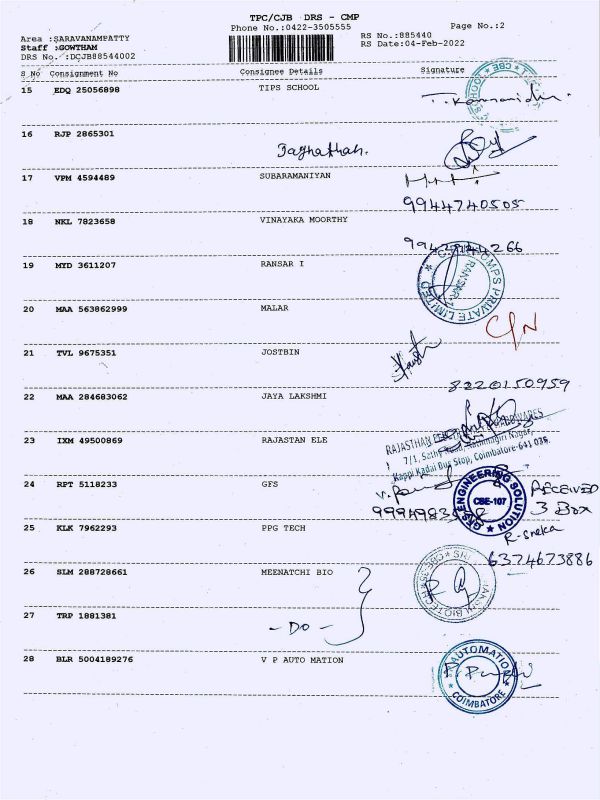 TPC/CJB DRS - CMP
Phone No.:0422-3505555
Page No.:2
Area :SARAVANAMPATTY
Staff :GOWTHAM
DRS No. :DCJB88544002
RS No.:885440
RS Date:04-Feb-2022
S No Consignment No Consignee Details Signature
15 EDQ 25056898 TIPS SCHOOL
16 RJP 2865301
17 VPM 4594489 SUBARAMANIYAN
9944740505
18 NKL 7823658 VINAYAKA MOORTHY
19 MYD 3611207 RANSAR I
20 MAA 563862999 MALAR
C/N
21 TVL 9675351 JOSTBIN
8220150959
22 MAA 284683062 JAYA LAKSHMI
23 IXM 49500869 RAJASTAN ELE
Kappi Kadai Bus Stop, Coimbatore-641 035.
24 RPT 5118233 GFS
GKS ENGINEERING SOLUTION
CBE-107
RECEIVED
3 Box
25 KLK 7962293 PPG TECH
R-sneka
6374673886
26 SLM 288728661 MEENATCHI BIO
27 TRP 1881381
- DO -
28 BLR 5004189276 V P AUTO MATION
AUTOMATION
COIMBATORE